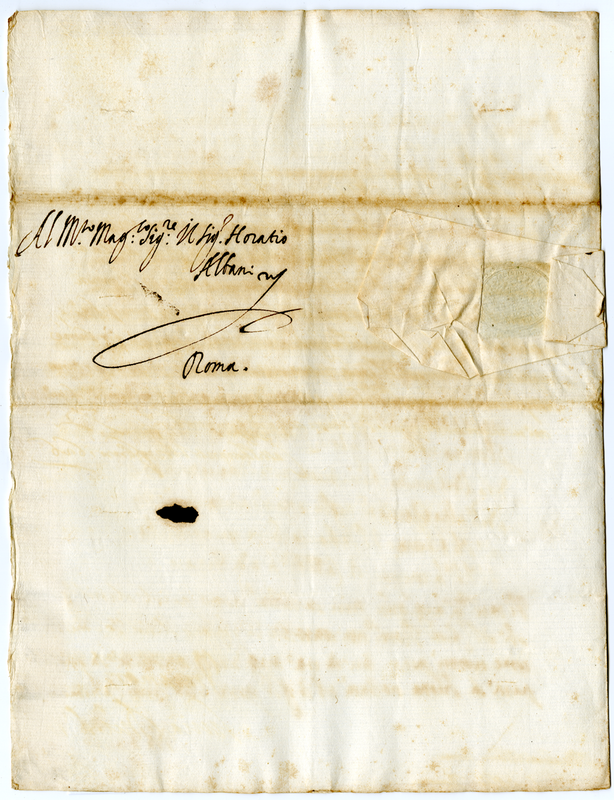 Al M.to Mag.co Sig.re Il Sig.r Horatio
Albani
Roma.